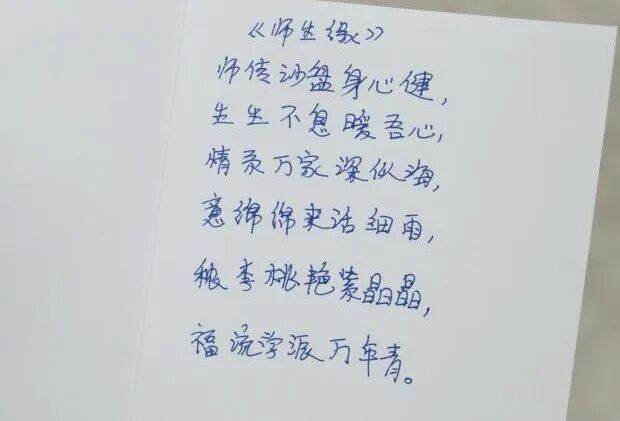 《师生缘》
师传沙盘身心健,
生生不息暖吾心,
情系万家深似海,
意绵绵来话细雨,
李桃艳紫晶晶,
福流学派万年青。